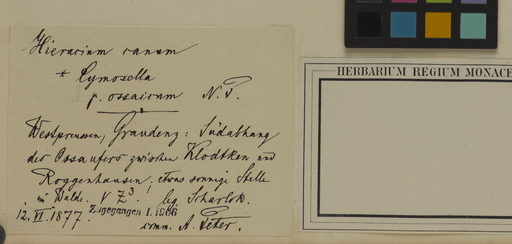 Hieracium canum
* Cymosella
β. ossaicum N. P.
Westpreussen, Graudenz: Südabhang
des Ossaufers zwischen Klodtken und
Roggenhausen, etwas sonnige Stelle
im Walde. V Z³. leg. Scharlok.
12. VI. 1877. Zugegangen 1.1906
comm. A. Peter.
HERBARIUM REGIUM MONACE